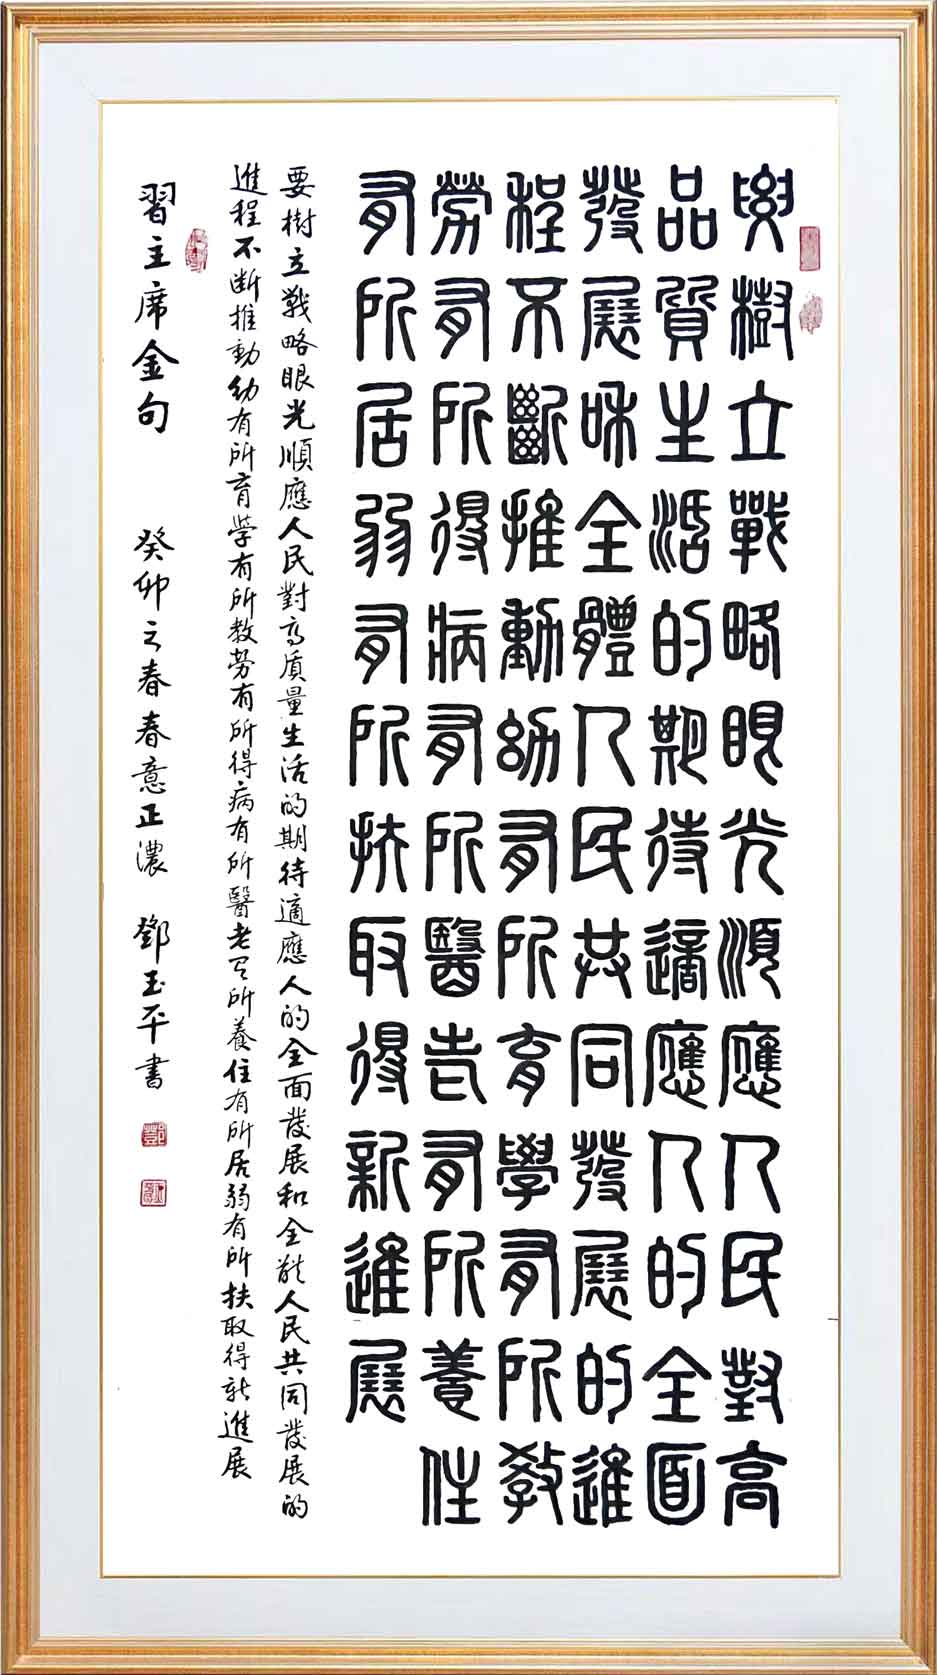 要樹立戰略眼光順應人民對高
品質生活的期待適應人的全面
發展和全體人民共同發展的進
程不斷推動幼有所育學有所教
勞有所得病有所醫老有所養住
有所居弱有所扶取得新進展
要樹立戰略眼光順應人民對高质量生活的期待適應人的全面發展和全體人民共同發展的
進程不断推動幼有所育学有所教劳有所得病有所醫老有所養住有所居弱有所扶取得新進展
習主席金句 癸卯之春春意正濃 鄧玉平書